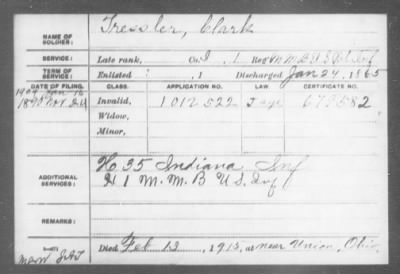 NAME OF SOLDIER: Tressler, Clark
SERVICE: Late rank, Co. I, 1 Reg't M M B U S Vol Inf
TERM OF SERVICE: Enlisted , 1 Discharged Jan 24, 1865
DATE OF FILING. CLASS. APPLICATION NO. LAW. CERTIFICATE NO.
1890 Nov 24 Invalid, 1012522 679582
Widow,
Minor,
ADDITIONAL SERVICES: H 35 Indiana Inf
H 1 M. M. B U S. Inf
REMARKS:
Died Feb 13, 1915, at near Union, Ohio